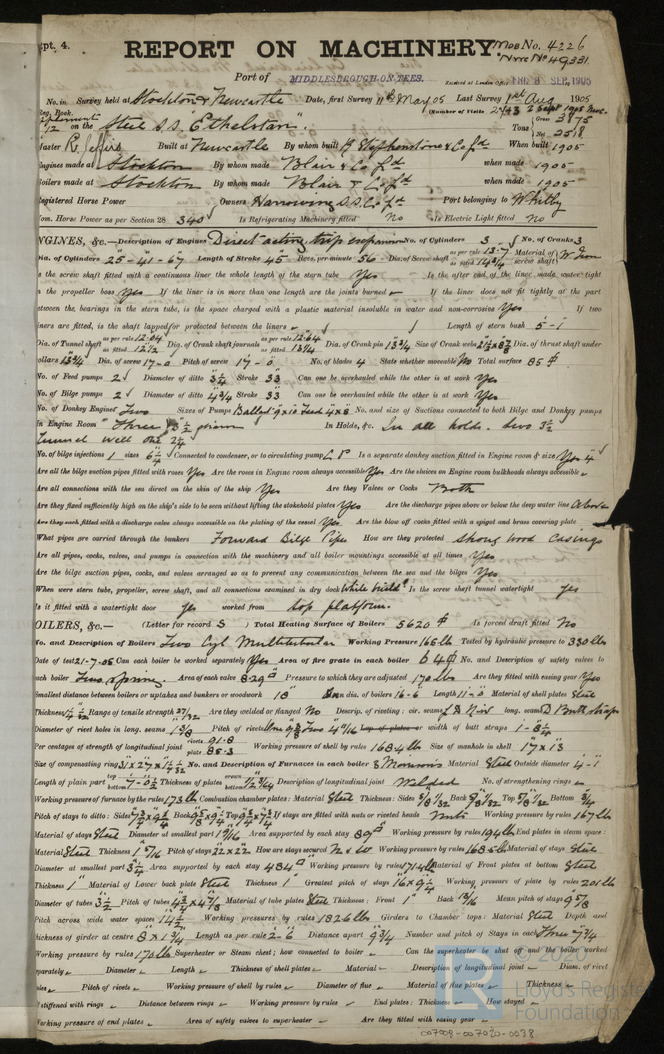 pt. 4.
REPORT ON MACHINERY.
Mbo No. 4226
Nwc No 49331
Port of MIDDLESBROUGH-ON-TEES. Received at London Office FRI. 8 SEP. 1905
No. in Survey held at Stockton & Newcastle Date, first Survey 11th May 05 Last Survey 1st Aug 1905
Reg. Book. (Number of Visits 2 Sept 1905 Nwc.
on the Steel S.S. "Ethelstan". Tons Gross 3875 Net 2518
Master R. Built at Newcastle By whom built R Stephenson & Co Ld When built 1905
Engines made at Stockton By whom made Blair & Co Ld when made 1905
Boilers made at Stockton By whom made Blair & Co Ld when made 1905
Registered Horse Power Owners Harrowing S.S. Co Ld Port belonging to Whitby
Nom. Horse Power as per Section 28 340 Is Refrigerating Machinery fitted No Is Electric Light fitted No
ENGINES, &c.—Description of Engines Direct acting trip expansion No. of Cylinders 3 No. of Cranks 3
Dia. of Cylinders 25-41-67 Length of Stroke 45" Revs. per minute 56 Dia. of Screw shaft as per rule 13.7 as fitted 14 3/4 Material of screw shaft W Iron
Is the screw shaft fitted with a continuous liner the whole length of the stern tube Yes Is the after end of the liner made water tight
in the propeller boss Yes If the liner is in more than one length are the joints burned If the liner does not fit tightly at the part
between the bearings in the stern tube, is the space charged with a plastic material insoluble in water and non-corrosive Yes If two
liners are fitted, is the shaft lapped or protected between the liners Length of stern bush 5-1
Dia. of Tunnel shaft as per rule 12.04 as fitted 12 1/2 Dia. of Crank shaft journals as per rule 12.64 as fitted 13 1/4 Dia. of Crank pin 13 3/4 Size of Crank webs Dia. of thrust shaft under
collars 13 3/4 Dia. of screw 17-0 Pitch of screw 17-0 No. of blades 4 State whether moveable No Total surface 85
No. of Feed pumps 2 Diameter of ditto 3 1/4 Stroke 33 Can one be overhauled while the other is at work Yes
No. of Bilge pumps 2 Diameter of ditto 4 3/4 Stroke 33 Can one be overhauled while the other is at work Yes
No. of Donkey Engines Two Sizes of Pumps Ballast 9x10 Feed 4x8 No. and size of Suctions connected to both Bilge and Donkey pumps
In Engine Room Three 3 1/2 In Holds, &c. In all holds. two 3 1/2
Tunnel well one 2 1/4
No. of bilge injections 1 sizes 6 1/2 Connected to condenser, or to circulating pump C.P Is a separate donkey suction fitted in Engine room & size Yes 4"
Are all the bilge suction pipes fitted with roses Yes Are the roses in Engine room always accessible Yes Are the sluices on Engine room bulkheads always accessible
Are all connections with the sea direct on the skin of the ship Yes Are they Valves or Cocks Both
Are they fixed sufficiently high on the ship's side to be seen without lifting the stokehold plates Yes Are the discharge pipes above or below the deep water line Above
Are they each fitted with a discharge valve always accessible on the plating of the vessel Yes Are the blow off cocks fitted with a spigot and brass covering plate
What pipes are carried through the bunkers Forward Bilge Pipes How are they protected Strong wood casings
Are all pipes, cocks, valves, and pumps in connection with the machinery and all boiler mountings accessible at all times Yes
Are the bilge suction pipes, cocks, and valves arranged so as to prevent any communication between the sea and the bilges Yes
When were stern tube, propeller, screw shaft, and all connections examined in dry dock While build Is the screw shaft tunnel watertight yes
Is it fitted with a watertight door yes worked from top platform.
BOILERS, &c.— (Letter for record S ) Total Heating Surface of Boilers 5620 Is forced draft fitted No
No. and Description of Boilers Two Cyl Multitubular Working Pressure 165 lb Tested by hydraulic pressure to 330 lbs
Date of test 21-7-05 Can each boiler be worked separately Yes Area of fire grate in each boiler 64 No. and Description of safety valves to
each boiler Two spring Area of each valve 8.29 Pressure to which they are adjusted 170 lbs Are they fitted with easing gear Yes
Smallest distance between boilers or uptakes and bunkers or woodwork 18" Mean dia. of boilers 16-6 Length 11-0 Material of shell plates Steel
Thickness Range of tensile strength Are they welded or flanged No Descrip. of riveting: cir. seams long. seams D Butt straps
Diameter of rivet holes in long. seams Pitch of rivets Lap of plates or width of butt straps
Per centages of strength of longitudinal joint rivets 91.8 plate 85.3 Working pressure of shell by rules 168.4 lbs Size of manhole in shell 17x13
Size of compensating ring No. and Description of Furnaces in each boiler 3 Morisons Material Steel Outside diameter 4-1
Length of plain part top bottom Thickness of plates crown bottom Description of longitudinal joint Welded No. of strengthening rings
Working pressure of furnace by the rules 173 lbs Combustion chamber plates: Material Steel Thickness: Sides Back Top Bottom
Pitch of stays to ditto: Sides Back Top If stays are fitted with nuts or riveted heads Nuts Working pressure by rules 167 lbs
Material of stays Steel Diameter at smallest part Area supported by each stay 89 Working pressure by rules 194 lbs End plates in steam space:
Material Steel Thickness Pitch of stays 22x22 How are stays secured Working pressure by rules 168.5 lbs Material of stays Steel
Diameter at smallest part Area supported by each stay 484 Working pressure by rules 171.4 lbs Material of Front plates at bottom Steel
Thickness 1" Material of Lower back plate Steel Thickness 1" Greatest pitch of stays Working pressure of plate by rules 201 lbs
Diameter of tubes 3 1/2 Pitch of tubes Material of tube plates Steel Thickness: Front 1" Back Mean pitch of stays 9 5/8
Pitch across wide water spaces 14 1/2 Working pressures by rules 182.6 lbs Girders to Chamber tops: Material Steel Depth and
thickness of girder at centre 8 x 1 3/4 Length as per rule 2-6 Distance apart 9 3/4 Number and pitch of Stays in each Three 7 3/4
Working pressure by rules 170 lbs Superheater or Steam chest; how connected to boiler Can the superheater be shut off and the boiler worked
separately Diameter Length Thickness of shell plates Material Description of longitudinal joint Diam. of rivet
holes Pitch of rivets Working pressure of shell by rules Diameter of flue Material of flue plates Thickness
If stiffened with rings Distance between rings Working pressure by rules End plates: Thickness How stayed
Working pressure of end plates Area of safety valves to superheater Are they fitted with easing gear
© 2020
Lloyd's Register
Foundation
007009-007020-0038